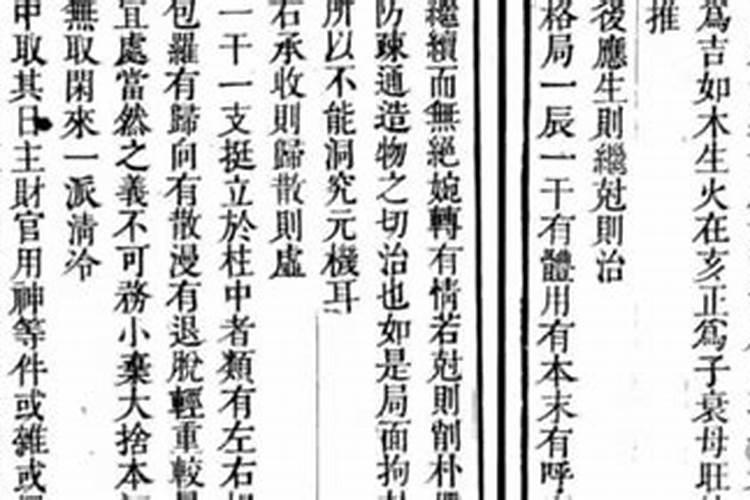 爲吉如木生火在亥正爲子衰母旺
推
後應生則繼尅則治
格局一辰一干有體用有本末有呼
繼續而無絕婉轉有情若尅則削朴
防疎通造物之切治也如是局面拘
所以不能洞究元機耳
右承收則歸散則虛
一干一支挺立於柱中者類有左右
包羅有歸向有散漫有退脫輕重較
宜處當然之義不可務小棄大捨本
無取閑來一派清冷
申取其日主財官用神等件或雜或